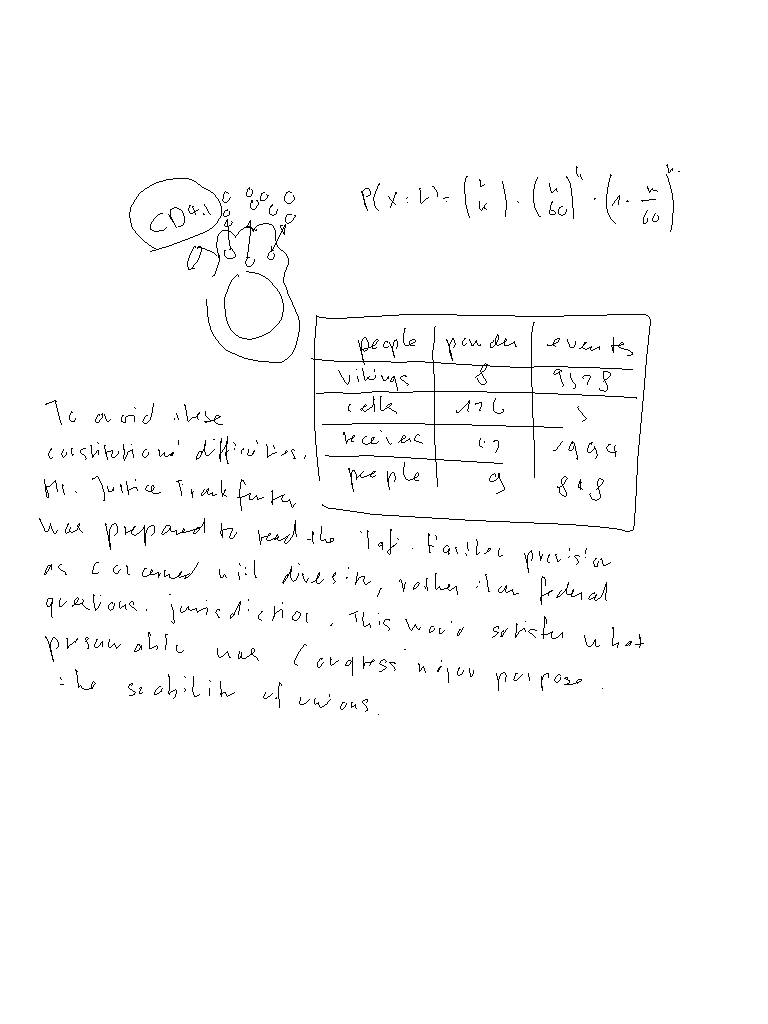 CD4.1
people ponder eventes
Vikings 8 9578
cells 126 5
receivers 9994
people 9 8*8
To avoid these
constitutional difficulties.
Mr. Justice Frankfurter
was prepared to read the Taft-Hartley provision
as concerned with diversity, rather than federal
questions. jurisdiction. This would satisfy what
presumably was Congress' major purpose
the suability of unions.